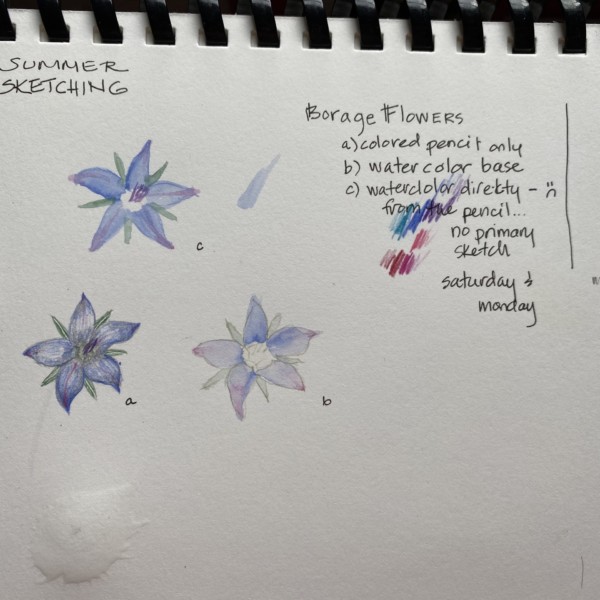 SUMMER
SKETCHING
Borage Flowers
a) colored pencil only
b) watercolor base
c) waterclolor direktly -
from the pencil...
no primary
sketch
saturday &
monday
c
a
b